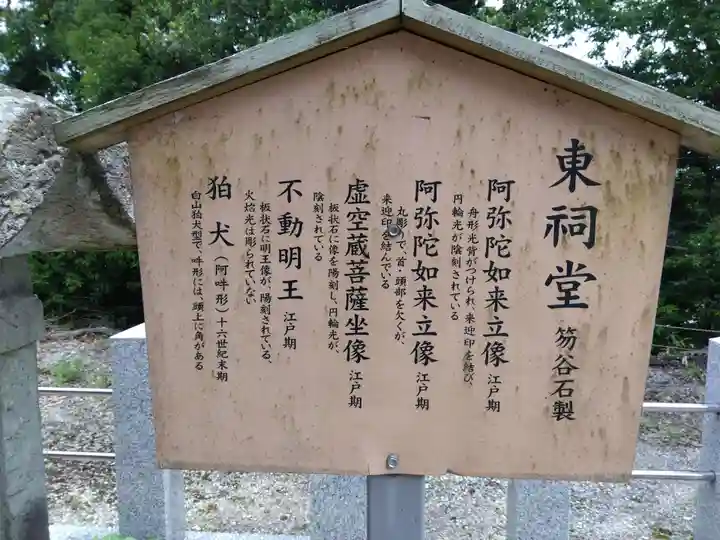 東祠堂 笏谷石製
阿弥陀如来立像 江戸期
舟形光背がつけられ、来迎印を結び、
円輪光が陰刻されている
阿弥陀如来立像 江戸期
丸彫りで、首・頭部を欠くが、
来迎印を結んでいる
虚空蔵菩薩坐像 江戸期
板状石に像を陽刻し、円輪光が、
陰刻されている
不動明王 江戸期
板状石に明王像が、陽刻されている、
火焔光は彫られていない
狛犬(阿吽形)十六世紀末期
白山狛犬型で、吽形には、頭上に角がある